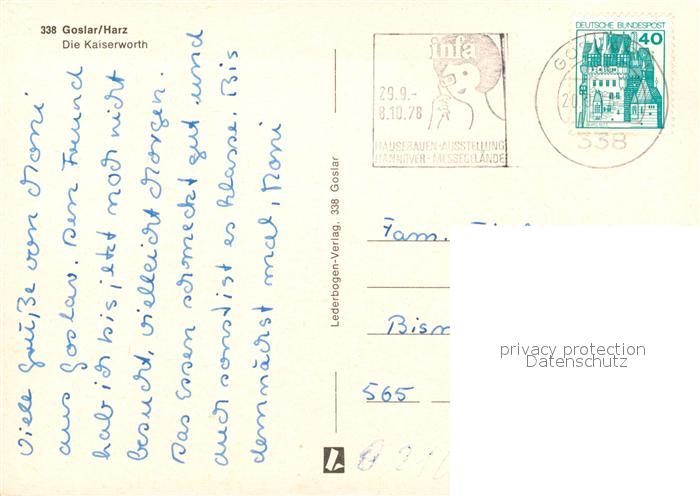 338 Goslar/Harz
Die Kaiserworth
Viele Grüße von Moni
aus Goslar. Den Freund
hab ich bis jetzt noch nicht
besucht, vielleicht Morgen.
Das Essen schmeckt gut und
auch sonst ist es klasse. Bis
demnächst mal, Moni
Lederbogen-Verlag, 338 Goslar
infa
29.9.-
8.10.78
HAUSFRAUEN-AUSSTELLUNG
HANNOVER-MESSEGELÄNDE
DEUTSCHE BUNDESPOST
40
338
Fam.
Bism
565
privacy protection
Datenschutz